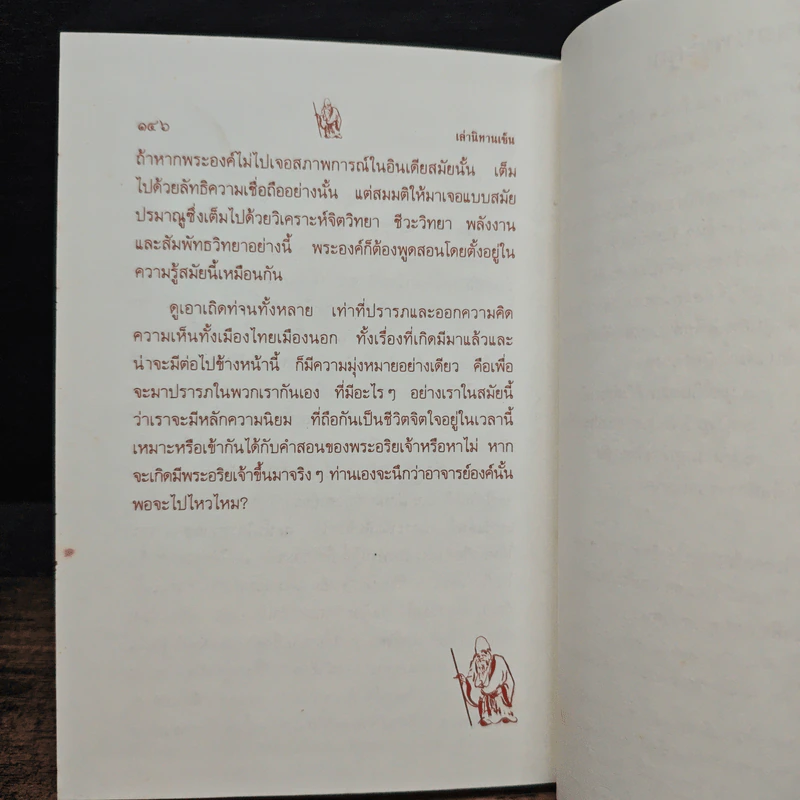 ๑๔๖
เล่านิทานเซ็น
ถ้าหากพระองค์ไม่ไปเจอสภาพการณ์ในอินเดียสมัยนั้น เต็ม
ไปด้วยลัทธิความเชื่อถืออย่างนั้น แต่สมมติให้มาเจอแบบสมัย
ปรมาณูซึ่งเต็มไปด้วยวิเคราะห์จิตวิทยา ชีวะวิทยา พลังงาน
และสัมพัทธวิทยาอย่างนี้ พระองค์ก็ต้องพูดสอนโดยตั้งอยู่ใน
ความรู้สมัยนี้เหมือนกัน
ดูเอาเถิดท่านทั้งหลาย เท่าที่ปรารภและออกความคิด
ความเห็นทั้งเมืองไทยเมืองนอก ทั้งเรื่องที่เกิดมีมาแล้วและ
น่าจะมีต่อไปข้างหน้านี้ ก็มีความมุ่งหมายอย่างเดียว คือเพื่อ
จะมาปรารภในพวกเรากันเอง ที่มีอะไรๆ อย่างเราในสมัยนี้
ว่าเราจะมีหลักความนิยม ที่ถือกันเป็นชีวิตจิตใจอยู่ในเวลานี้
เหมาะหรือเข้ากันได้กับคำสอนของพระอริยเจ้าหรือหาไม่ หาก
จะเกิดมีพระอริยเจ้าขึ้นมาจริงๆ ท่านเองจะนึกว่าอาจารย์องค์นั้น
พอจะไปไหวไหม?